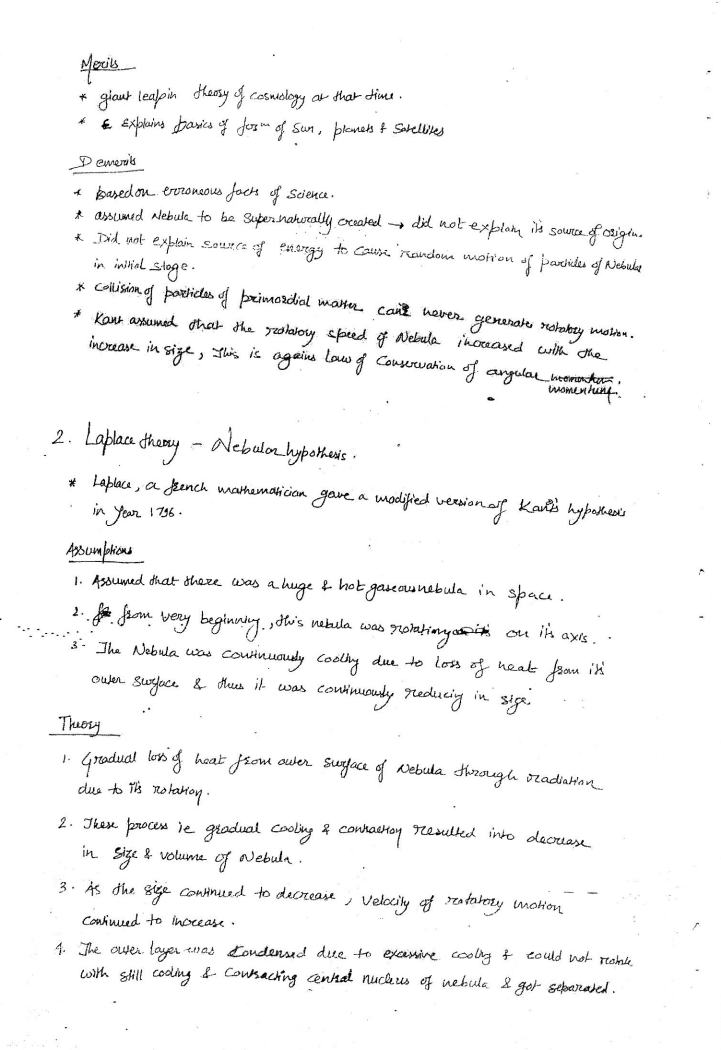 Merits
* giant leap in theory of cosmology at that time.
* Explains basics of form of Sun, planets & Satellites
Demerits
* Based on erroneous facts of Science.
* assumed Nebula to be Supernaturally created → did not explain its source of origin.
* Did not explain source of energy to cause random motion of particles of Nebula
in initial stage.
* Collision of particles of primordial matter can never generate rotatory motion.
* Kant assumed that the rotatory speed of Nebula increased with the
increase in size, This is agains Law of Conservation of angular
momentum.
2. Laplace theory - Nebular hypothesis.
* Laplace, a french mathematician gave a modified version of Kant's hypothesis
in year 1796.
Assumptions
1. Assumed that there was a huge & hot gaseous nebula in space.
2. from very beginning, this nebula was rotating on its axis.
3. The Nebula was continuously cooling due to loss of heat from its
outer surface & thus it was continuously reducing in size.
Theory
1. Gradual loss of heat from outer surface of Nebula through radiation
due to its rotation.
2. These process ie gradual cooling & contraction resulted into decrease
in size & volume of Nebula.
3. As the size continued to decrease, Velocity of rotatory motion
continued to increase.
4. The outer layer was Condensed due to excessive cooling & could not rotate
with still cooling & contracting central nucleus of nebula & got separated.